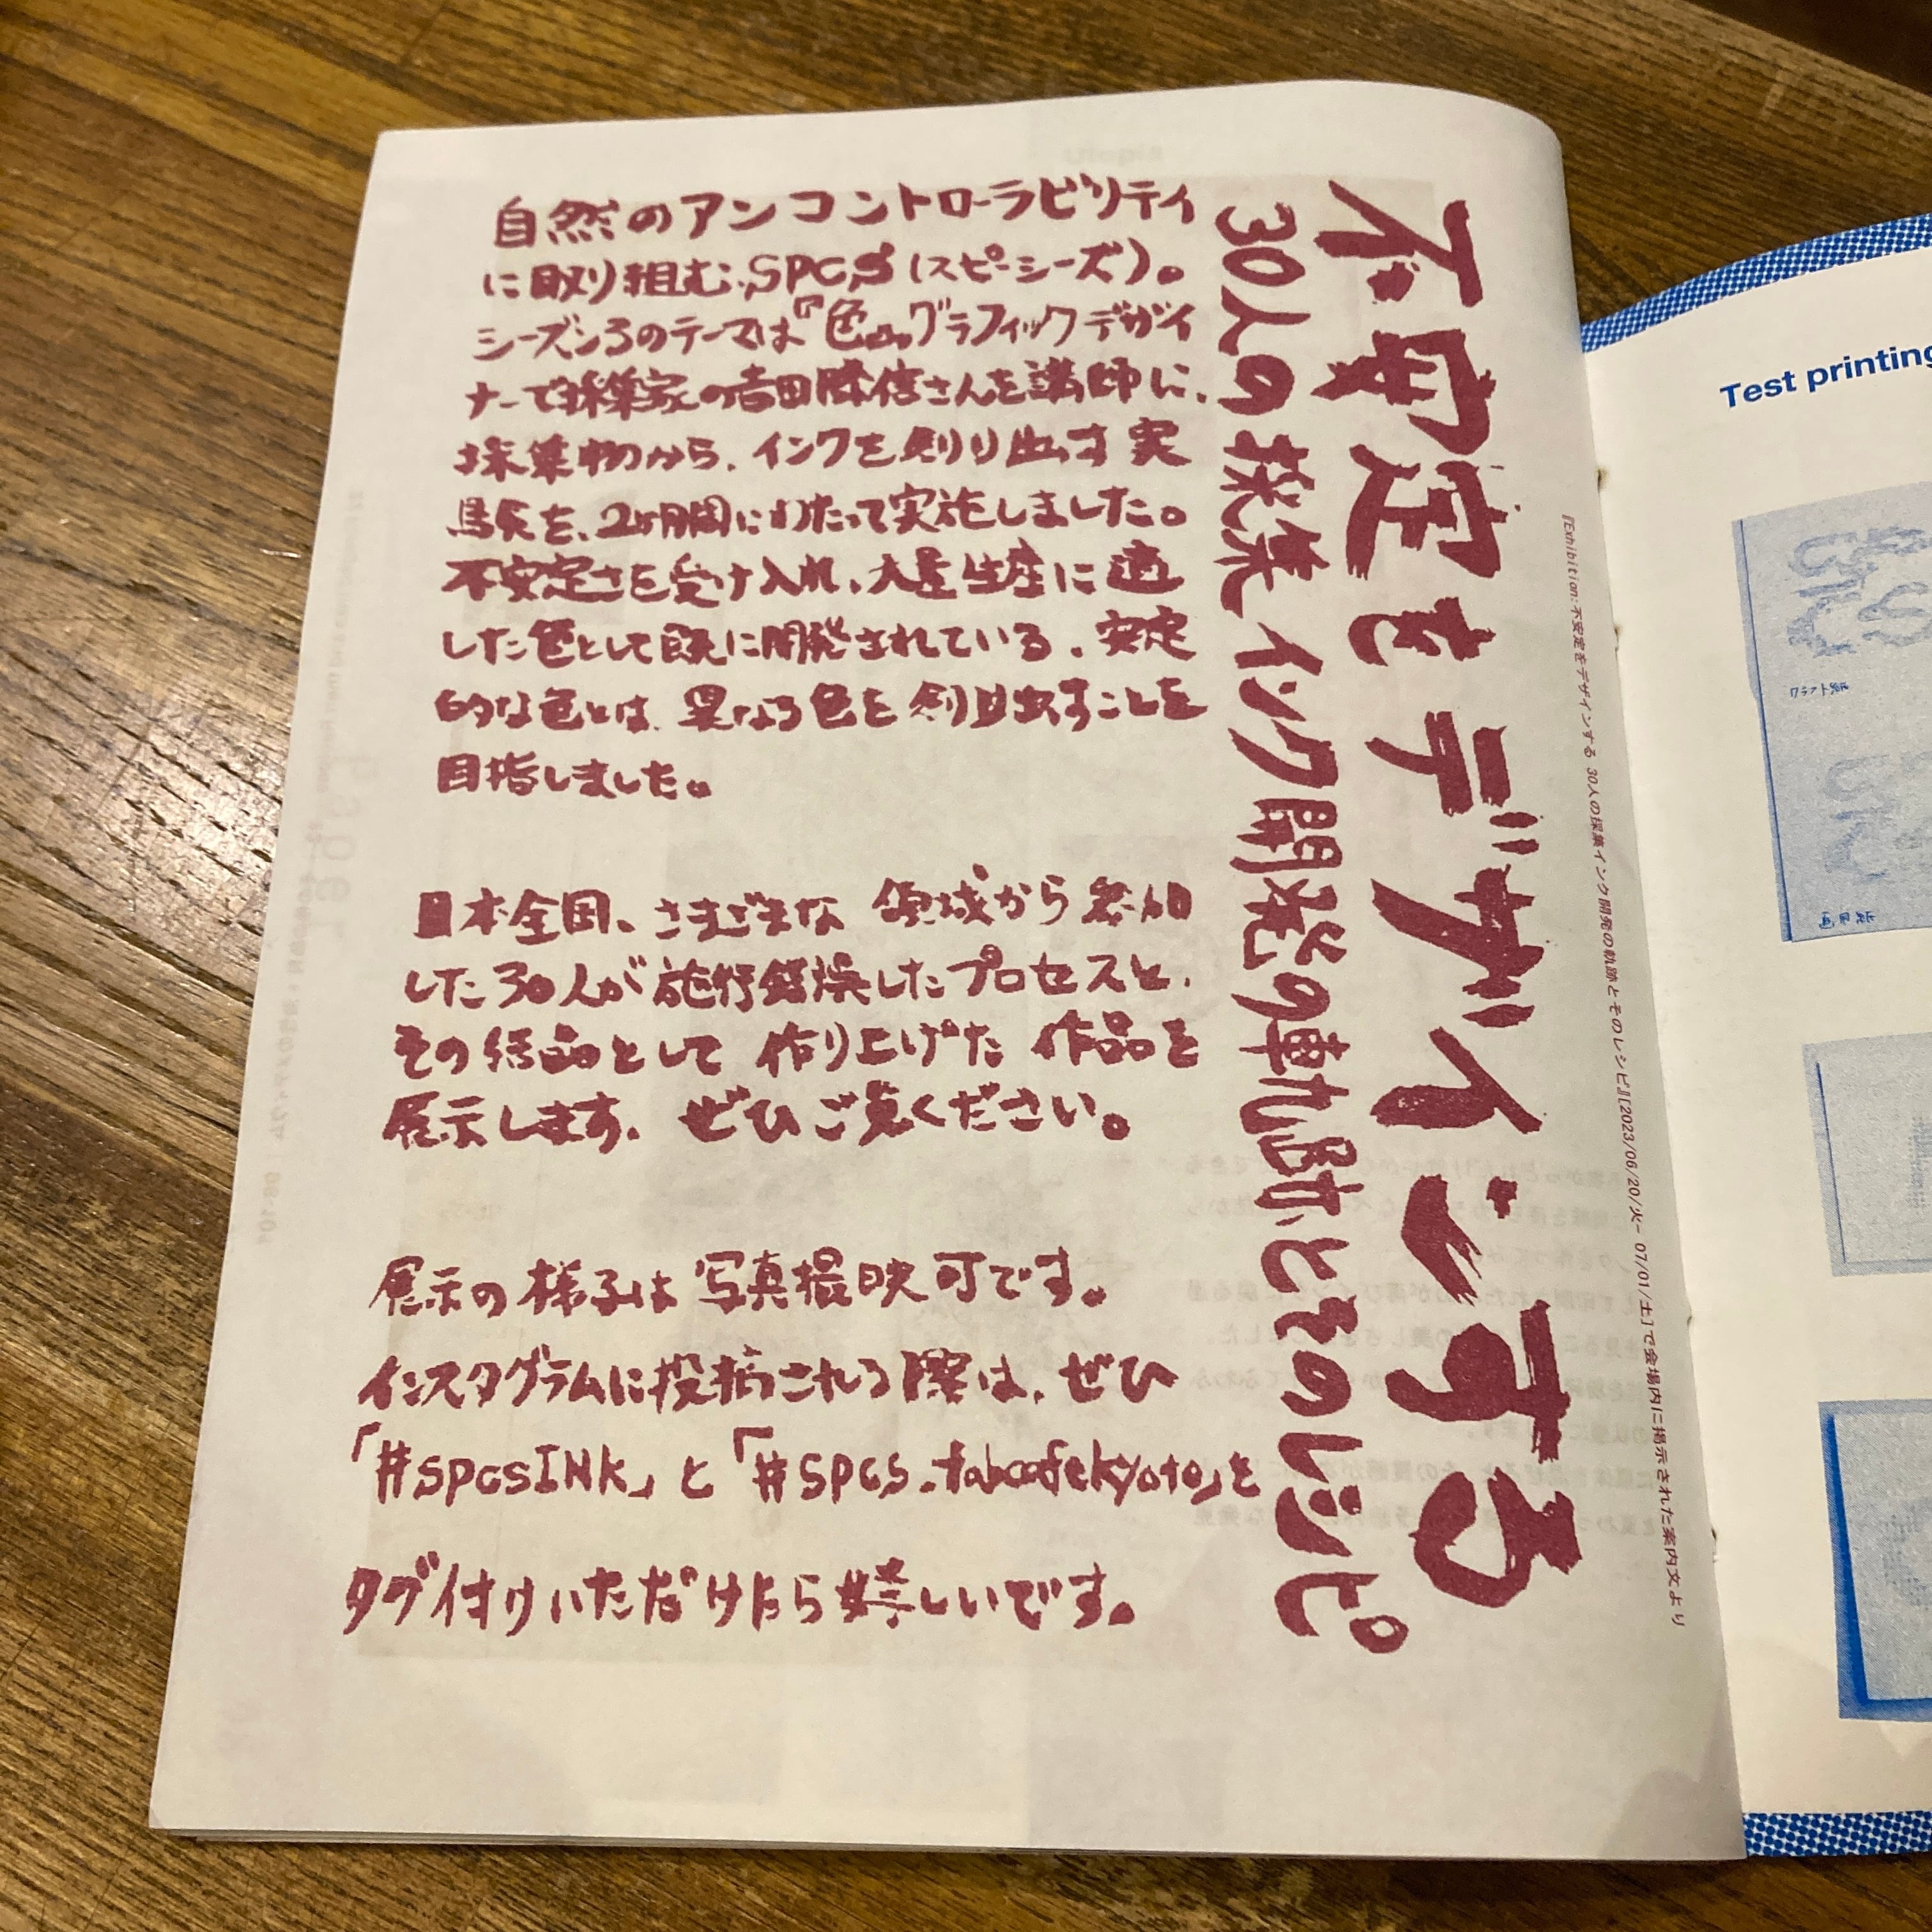 不安定をデザインする
30人の採集インク開発の軌跡とそのレシピ
自然のアンコントローラビリティ
に取り組む、SPCS(スピーシーズ)。
シーズン3のテーマは『色』。グラフィックデザイ
ナーで採集家の吉田勝信さんを講師に、
採集物から、インクを創り出す実
験を、2ヶ月間にわたって実施しました。
不安定さを受け入れ、大量生産に適
した色として既に開発されている、安定
的な色とは、異なる色を創り出すことを
目指しました。
日本全国、さまざまな領域から参加
した30人が施行錯誤したプロセスと、
その結晶として作り上げた作品を
展示します。ぜひご覧ください。
展示の様子は写真撮映可です。
インスタグラムに投稿される際は、ぜひ
「#SPCSINK」と「#SPCS.fabcafekyoto」を
タグ付けいただけたら嬉しいです。
『Exhibition: 不安定をデザインする 30人の採集インク開発の軌跡とそのレシピ』[2023/06/20/火− 07/01/土]で会場内に掲示された案内文より
Test printing
クラフト紙
画用紙